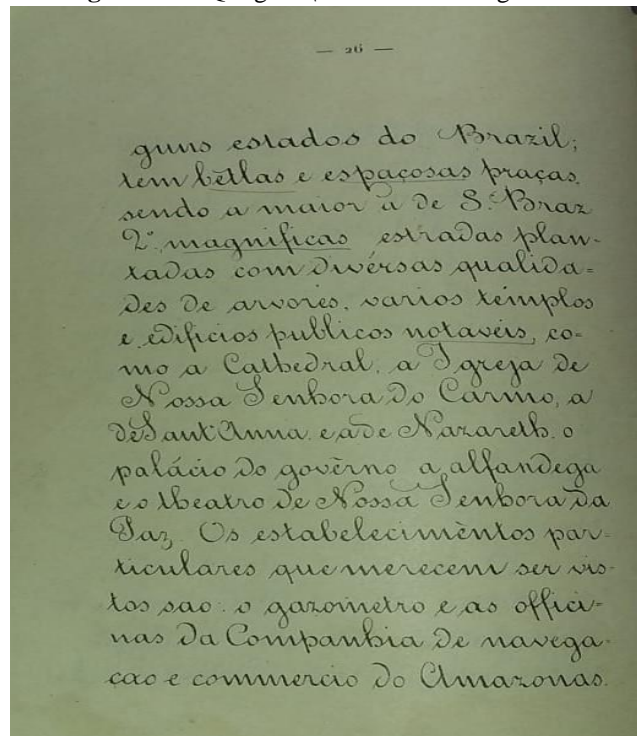 — 26 —
guns estados do Brazil;
tem bellas e espaçosas praças,
sendo a maior a de S. Braz
2º magnificas estradas plan-
tadas com diversas qualida=
des de arvores, varios templos
e edificios publicos notaveis, co-
mo a Cathedral, a Igreja de
Nossa Senhora do Carmo, a
de Sant'Anna e a de Nazareth, o
palácio do govêrno a alfandega
e o theatro de Nossa Senhora da
Paz. Os estabelecimèntos par-
ticulares que merecem ser vis-
tos sao: o gazometro e as offici-
nas da Companhia de navega-
cao e commercio do Amazonas.